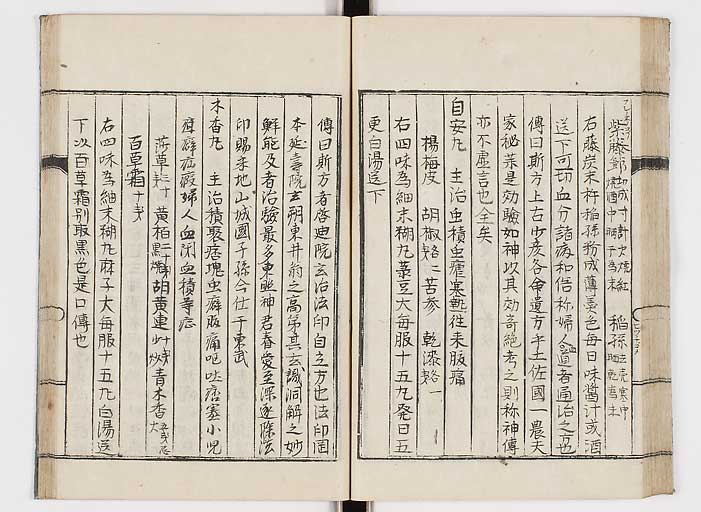 紫藤節 切成寸計火燒紅 燒酒中 為末 稲孫 寒中晒乾為末
右藤炭末杵稲孫粉成薄墨色每日味醬汁或酒
送下可切血分諸病和俗称婦人血道者通治之方也
傳曰斯方上古少彦名命遺方乎土佐國一農夫
家秘藥是効驗如神以其効奇絕考之則称神傳
亦不虛言也全矣
自安丸 主治虫積虫瘧寒熱往来腹痛
楊梅皮 胡椒各二 苦参 乾漆各一
右四味為細末糊丸菉豆大每服十五丸発日五
更白湯送下
傳曰斯方者啓迪院玄治法印自之方也法印固
本延壽院玄朔東井翁之高弟其玄識洞解之妙
鮮能及者治驗最多東照神君眷愛至深遂除法
印賜采地山城國子孫今仕于東武
木香丸 主治積聚痞塊虫癖腹痛嘔吐痞塞小児
疳癖疝瘕婦人血閉血積等症
莎草 黄柏 胡黄連 青木香
百草霜十戔
右四味為細末糊丸麻子大每服十五丸白湯送
下以百草霜別取黒色是口傳也